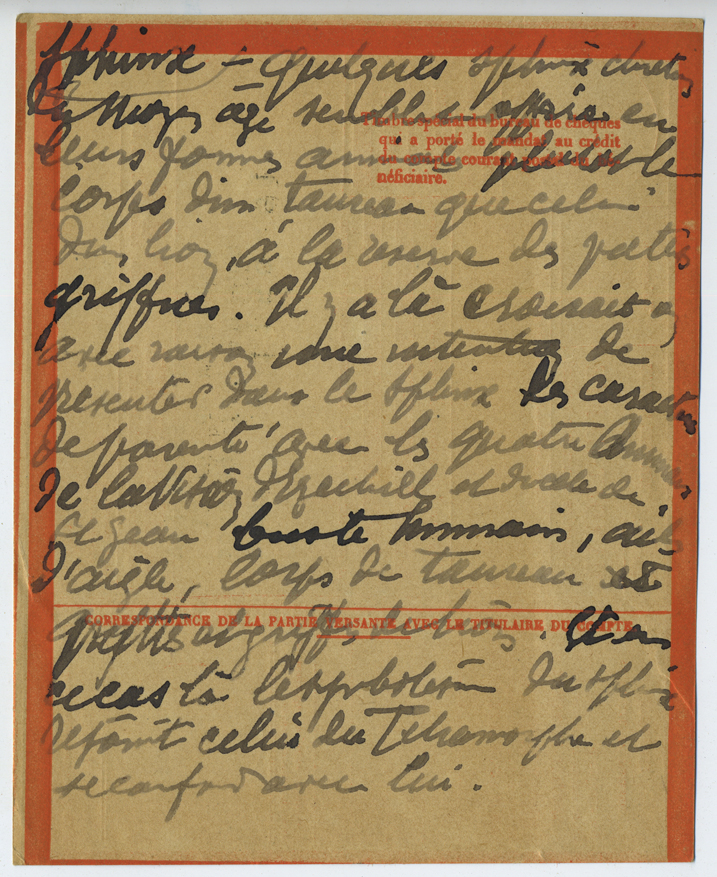 Sphinx – Quelques sphinx chrétiens
du Moyen âge semblent en
Timbre spécial du bureau de chèques
qui a porté le mandat au crédit
du compte courant postal du bé-
néficiaire.
leurs formes plutôt le
corps d'un taureau que celui
d'un lion, à la réserve des pattes
griffues. Il y a là croirait on
avec raison une intention de
présenter dans le sphinx les caractères
de parenté avec les quatre Animaux
de la Vision d'Ezechiel et de celle de
St Jean buste humain, ailes
d'aigle, corps de taureau et
CORRESPONDANCE DE LA PARTIE VERSANTE AVEC LE TITULAIRE DU COMPTE
pattes et griffes de lion. Et en
ce cas là le symbolisme du sphinx
celui du Tétramorphe et
se confond avec lui.